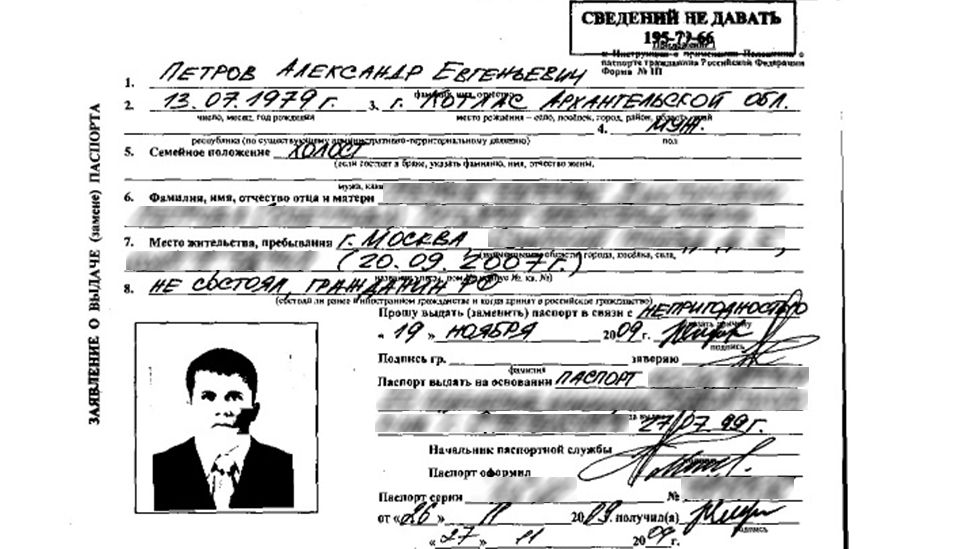 СВЕДЕНИЙ НЕ ДАВАТЬ
195-79-66
Приложение 1
к Инструкции о применении Положения о
паспорте гражданина Российской Федерации
Форма № 1П
ЗАЯВЛЕНИЕ О ВЫДАЧЕ (замене) ПАСПОРТА
1. ПЕТРОВ АЛЕКСАНДР ЕВГЕНЬЕВИЧ
фамилия, имя, отчество
2. 13.07.1979 г. 3. г. КОТЛАС АРХАНГЕЛЬСКОЙ ОБЛ.
число, месяц, год рождения место рождения – село, посёлок, город, район, область, край
4. МУЖ.
республика (по существующему административно-территориальному делению) пол
5. Семейное положение ХОЛОСТ
(если состоит в браке, указать фамилию, имя, отчество жены,
мужа, кем
6. Фамилия, имя, отчество отца и матери
7. Место жительства, пребывания г. МОСКВА,
области, города, посёлка, села,
(20.09.2007 г.)
№ кв. №)
8. НЕ СОСТОЯЛ, ГРАЖДАНИН РФ
(состоял ли ранее в иностранном гражданстве и когда принят в российское гражданство)
Прошу выдать (заменить) паспорт в связи с НЕПРИГОДНОСТЬЮ
указать причину
« 19 » НОЯБРЯ 2009 г.
подпись
Подпись гр. заверяю
фамилия
Паспорт выдать на основании ПАСПОРТ
27.07.99 г.
Начальник паспортной службы
Паспорт оформил
Паспорт серии №
от «26» 11 2009. получил(а)
подпись
«27» 11 2009 г.